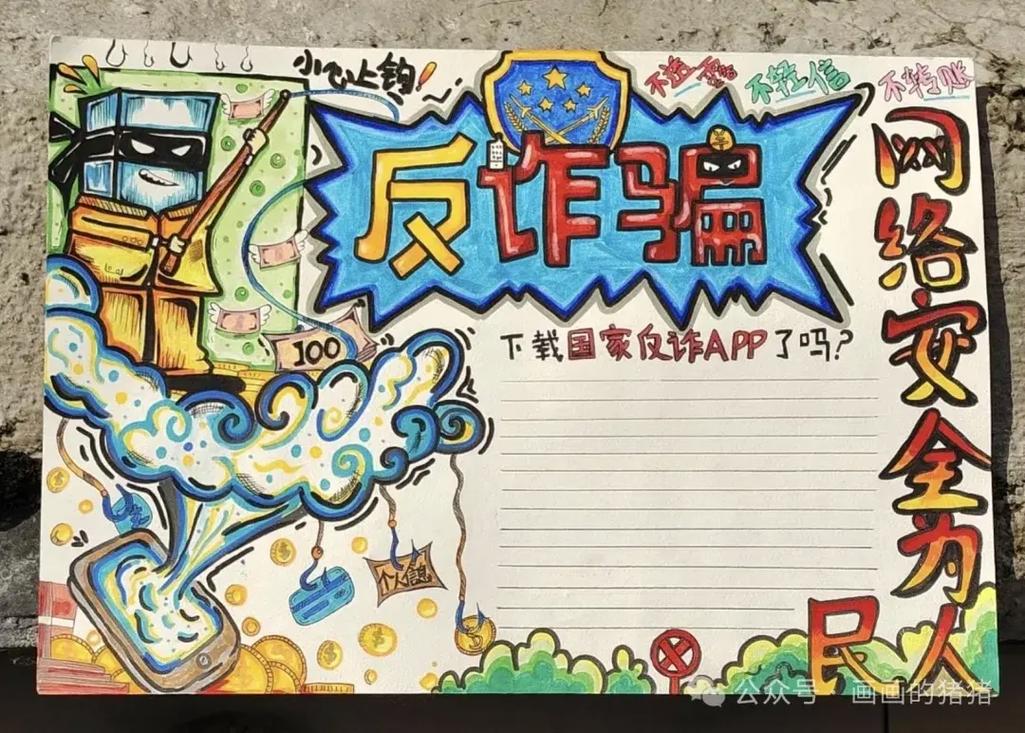 小心上钩!
不透露 不轻信 不转账
反诈骗
网络安全为人民
下载国家反诈APP了吗?
100
个人信息
公众号 · 画画的猪猪